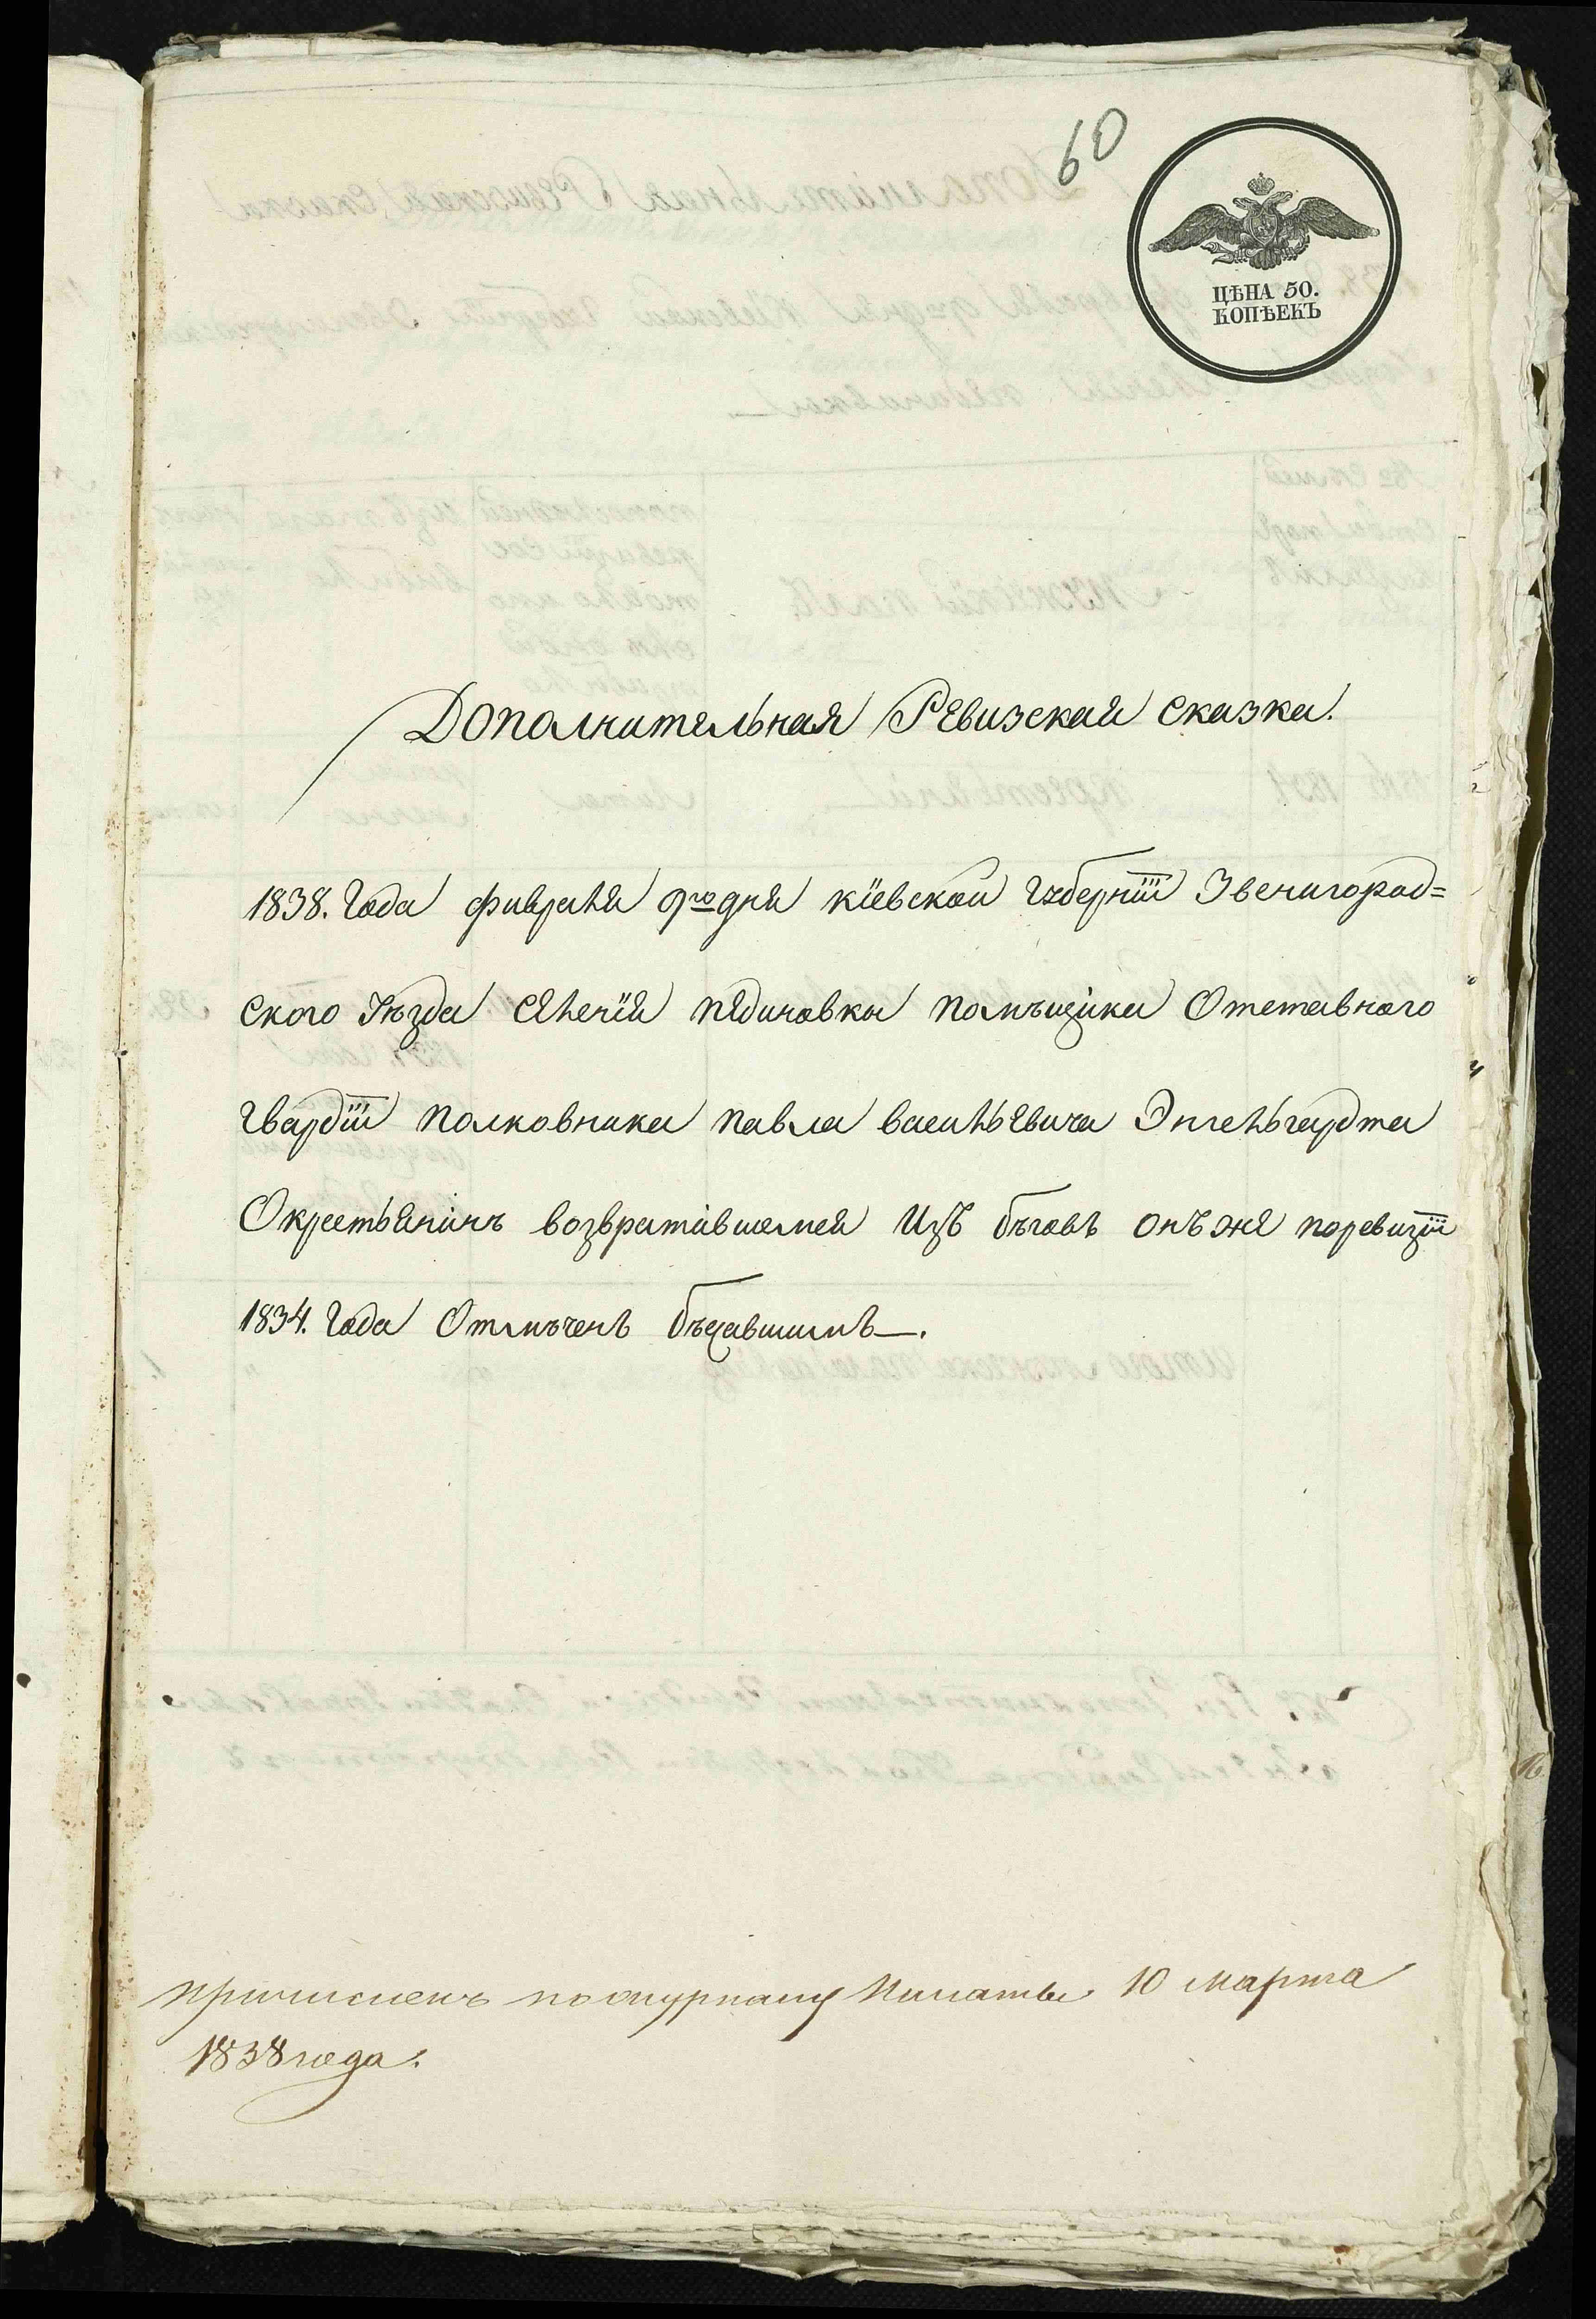 60
ЦѢНА 50.
КОПѢЕКЪ
Дополнительная Ревизская сказка.
1838. Года февраля 9го дня Кіевской Губерніи Звенигород=
ского Уѣзда Селенія Пединовки Помѣщика Отставного
Гвардіи Полковника Павла Васильевича Энгельгардта
О крестьянинѣ возвратившемся изъ бѣговъ онъ же по ревизіи
1834. Года Отмѣченъ бѣжавшимъ—.
Причисленъ по журналу Палаты 10 марта
1838 года.